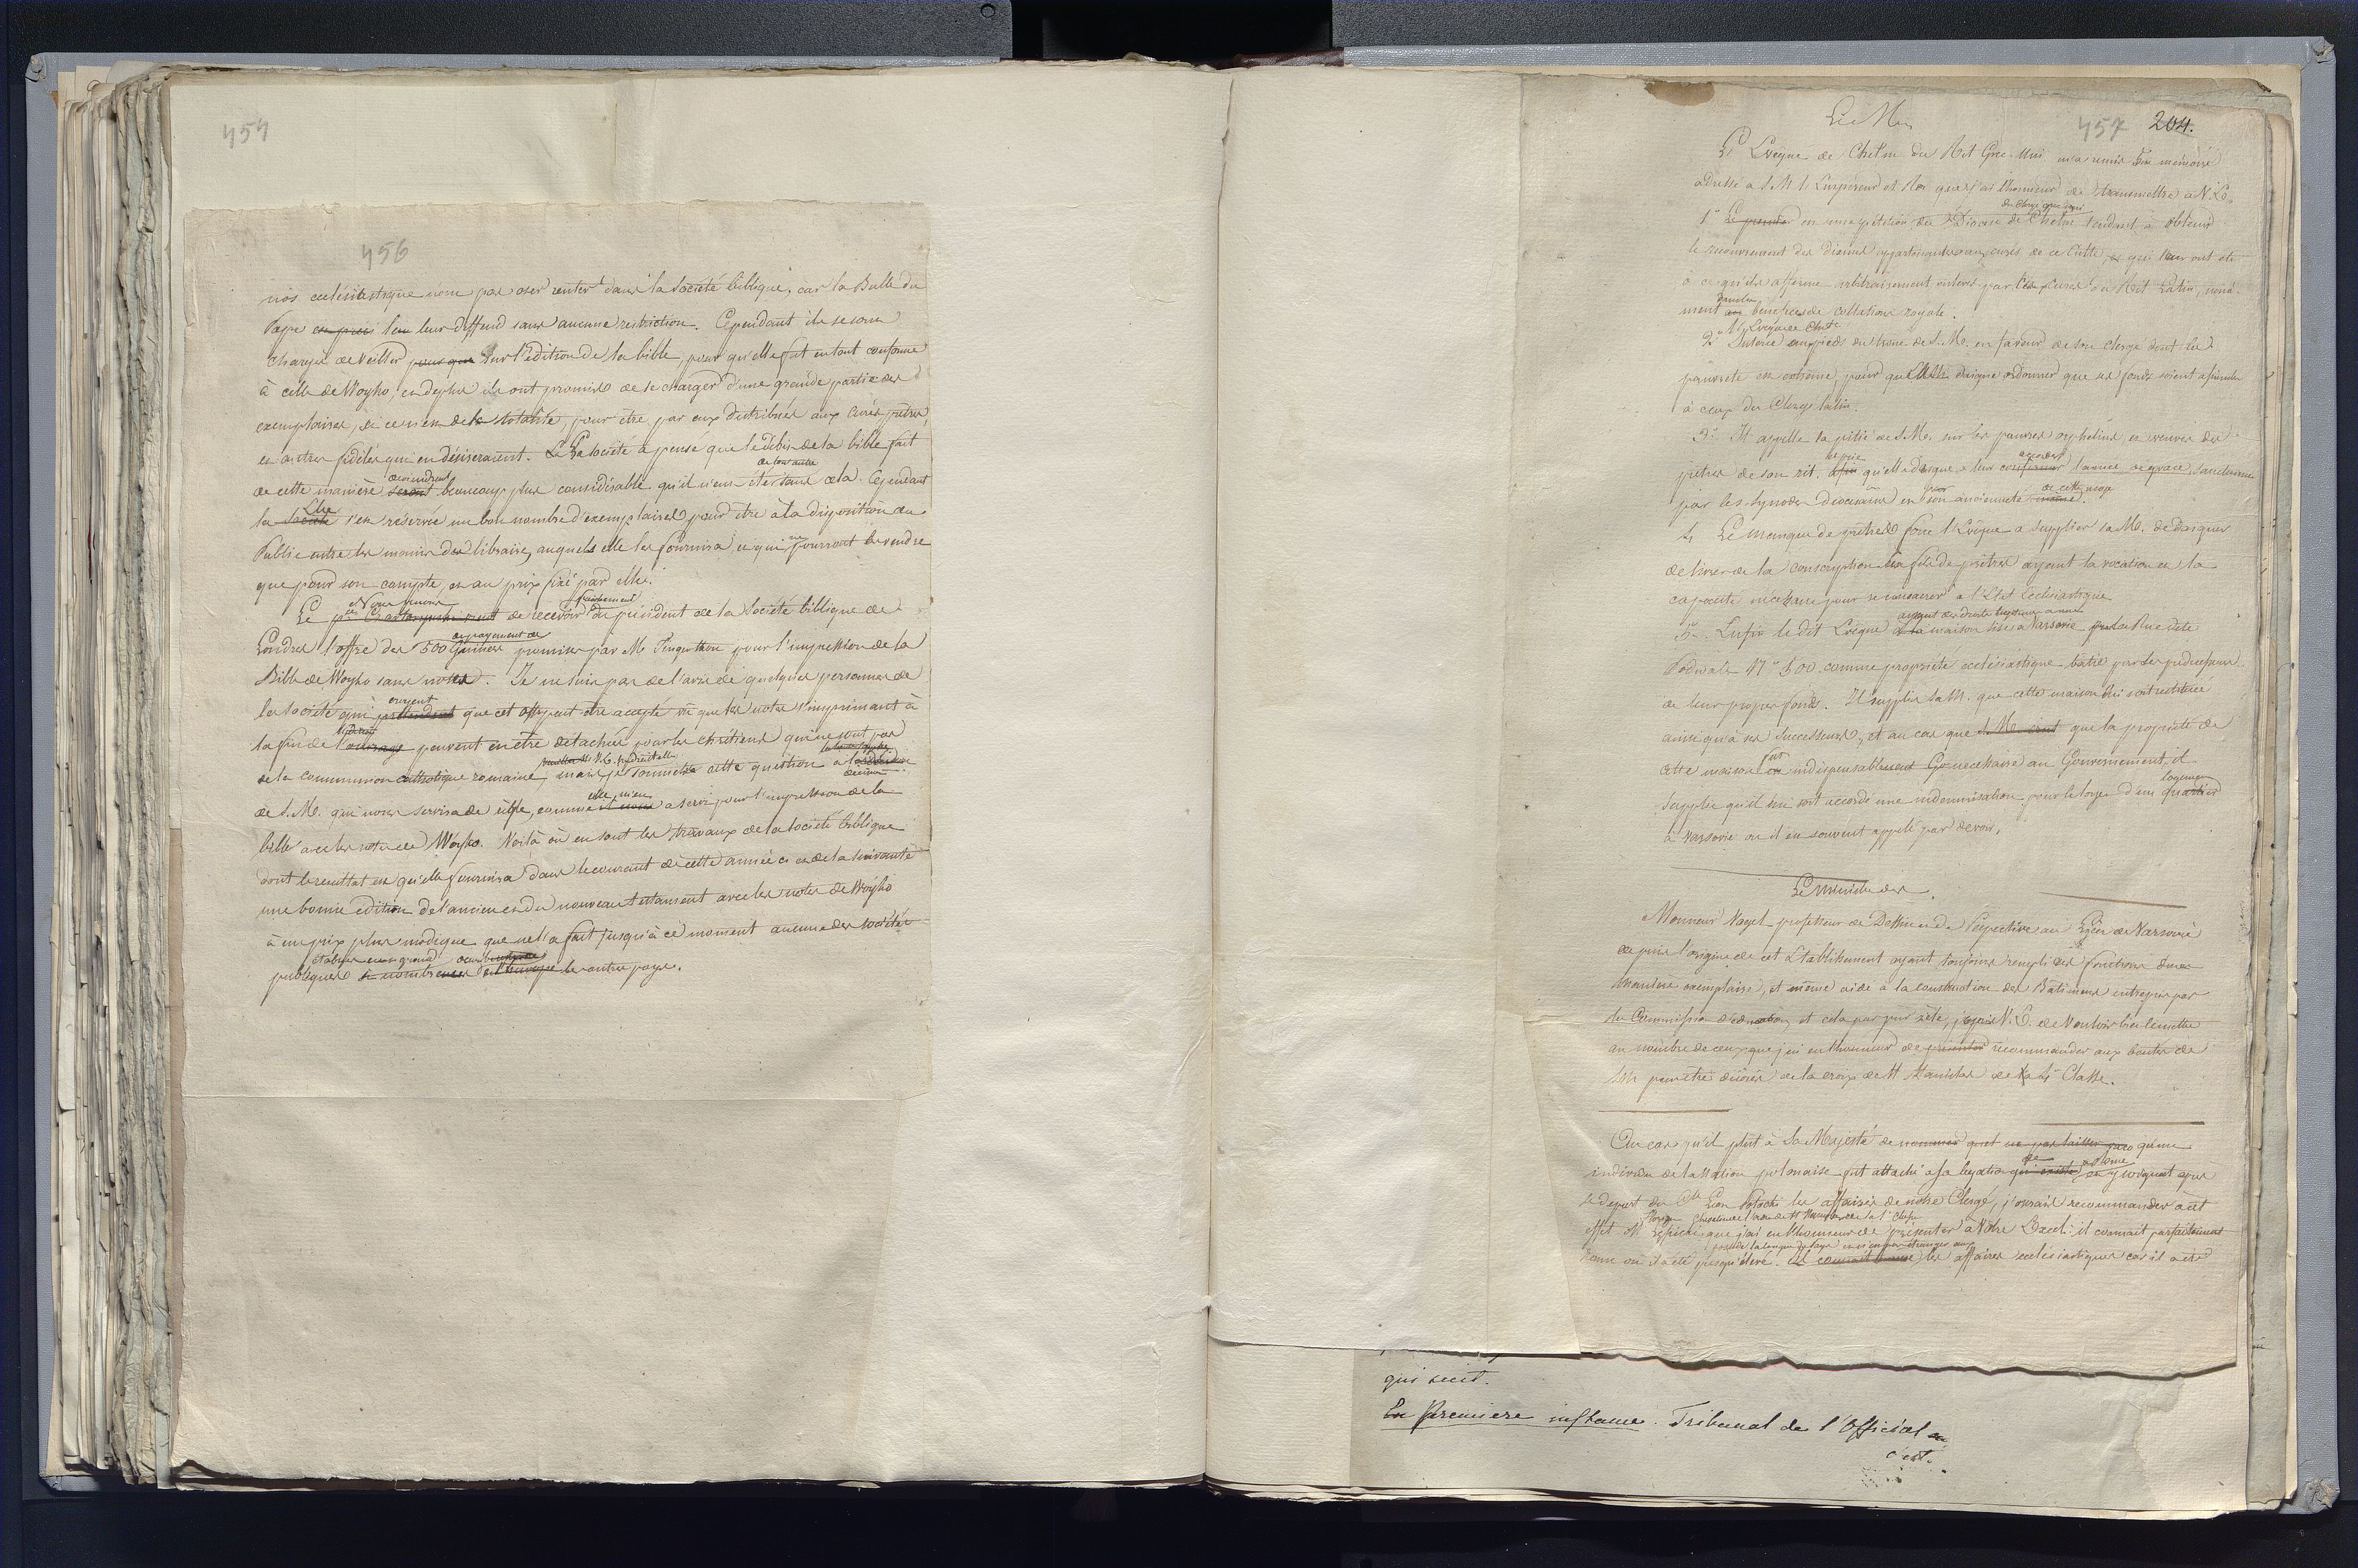 454
456
nos ecclésiastique nous pas oser entrer dans la Société biblique, car la Bulle du
Pape leur deffend sans aucune restriction. Cependant ils se sont
chargés de veiller pour que sur l'édition de la bible, pour qu'elle fut en tout conforme
à celle de Woyko, en deplus ils ont promis de se charger d'une grande partie des
exemplaires, si ce n'en de la totalité, pour être par eux distribués aux curés, prêtres,
et autres fidèles qui en désireraient. La Société a pensé que le débit de la bible fait
de tout autre
de cette manière seront beaucoup plus considérable qu'il n'eut été sans cela. Cependant
Elle
la Société s'est réservée un bon nombre d'exemplaires pour être à la disposition du
Public entre les mains des libraires, auquels elle les fournira, et qui ne pourront les vendre
que pour son compte, et au prix fixé par elle.
Nous avons
de recevoir du président de la Société biblique de
de payement de
Londres l'offre des 500 Guinées promises par M. Pinquerthon pour l'impression de la
Bible de Woyko sans notes. Je ne suis pas de l'avis de quelques personnes de
croyent
la Société qui prétendent que cet offre peut être accepté vu que les notes s'imprimant à
la fin de l'ouvrage peuvent en être detachés pour les chrétiens qui ne sont pas
de la communion catholique romaine, mais je soumets cette question à la décision
de S.M. qui nous servira de règle, comme a servi pour l'impression de la
bible avec les notes de Woyko. Voilà où en sont les travaux de la Société biblique
dont le resultat est qu'elle fournira dans le courant de cette année ci et de la suivante
une bonne édition de l'ancien et du nouveau testament avec les notes de Woyko
à un prix plus modique que ne l'a fait jusqu'à ce moment aucune des sociétés
publiques les autres pays.
457 204.
Le Min
L'Evêque de Chelm du Rit Grec-Uni m'a remis un mémoire
adressé a S.M. l'Empereur et Roi que j'ai l'honneur de transmettre a V. E.
du Clergé grec uni
1° en une pétition du Diocèse de Chelm tendant à obtenir
le recouvrement des dixmes appartenantes aux curés de ce Culte, et qui leur ont été
à ce qu'ils afferme arbitrairement enlevés par les Curés du Rit Latin, nom-
ment bénéfices de collation royale.
L'Evêque de Chelm
2° Insere aux pieds du trone de S.M. en faveur de son clergé dont la
pauvreté est extreme, pour qu'Elle daigne ordonner que ses fonds soient assimilés
à ceux du Clergé latin.
3° Il appelle la pitié de S.M. sur les pauvres orphelins, et veuves des
prêtres de son rit. qu'elle daigne leur confirmer l'année de grace, sanctionnée
par les Synodes diocésains en son ancienneté de cette usage
4 Le manque de prêtres force l'Evêque a supplier sa M. de daigner
delivrer de la conscription les fils de prêtres ayant la vocation et la
capacité nécessaire pour se consacrer a l'Etat Ecclésiastique
5° Enfin le dit Evêque la maison sise a Varsovie rue dite
Podwale N° 500 comme propriété ecclésiastique batie par ses predecesseurs
de leur propre fonds. Il supplie Sa M. que cette maison lui soit restituée
ainsi qu'à ses successeurs, et au cas que que la propriété de
cette maison fut indispensablement nécessaire au Gouvernement, il
supplie qu'il lui soit accordé une indemnisation pour le loyer d'un quartier
logement
à Varsovie ou il est souvent appelé par devoir.
Le Ministre des
Monsieur Vogel professeur de Dessin et de Perspective au Lycée de Varsovie
depuis l'origine de cet Etablissement ayant toujours rempli ses fonctions d'une
manière exemplaire, et même aidé à la construction des Batimens entrepris par
la Commission d'éducation, et cela par pur zèle, je prie V. E. de vouloir bien le mettre
au nombre de ceux que j'ai eu l'honneur de presenter recommander aux bontés de
S.M. pour être décoré de la croix de St Stanislas de la 4e Classe.
Au cas qu'il plut à Sa Majesté de nommer qu'un
individu de la Nation polonaise fut attaché a sa legation de Rome y soignant apres
le depart du Cte Leon Potocki les affaires de notre Clergé, j'oserais recommander à cet
effet M. que j'ai eu l'honneur de presenter à Votre Excell: il connait parfaitement
Rome où il a été presqu'élevé. les affaires ecclésiastiques car il a été
qui suit.
En Premiere instance. Tribunal de l'Official ou
c'est.